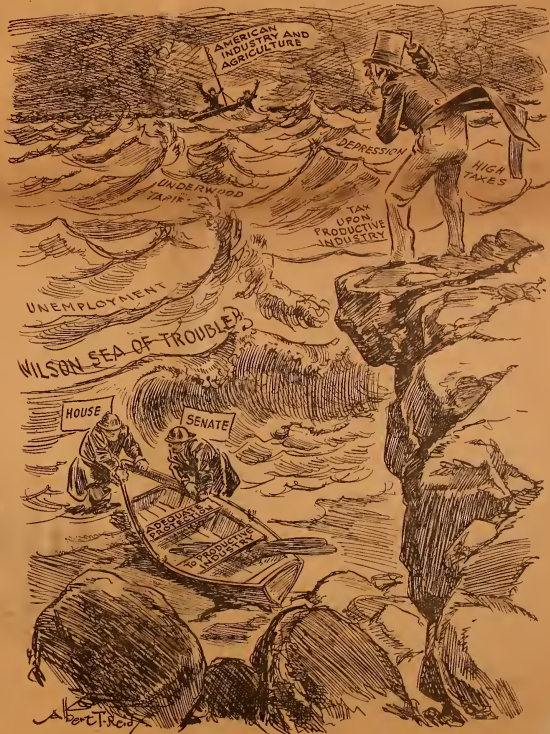 AMERICAN
INDUSTRY AND
AGRICULTURE
DEPRESSION
HIGH
TAXES
UNDERWOOD
TAX
UPON
PRODUCTIVE
INDUSTRY
UNEMPLOYMENT
WILSON SEA OF TROUBLES
HOUSE
SENATE
ADEQUATE
TO PRODUCTIVE
INDUSTRY
Albert T. Reid